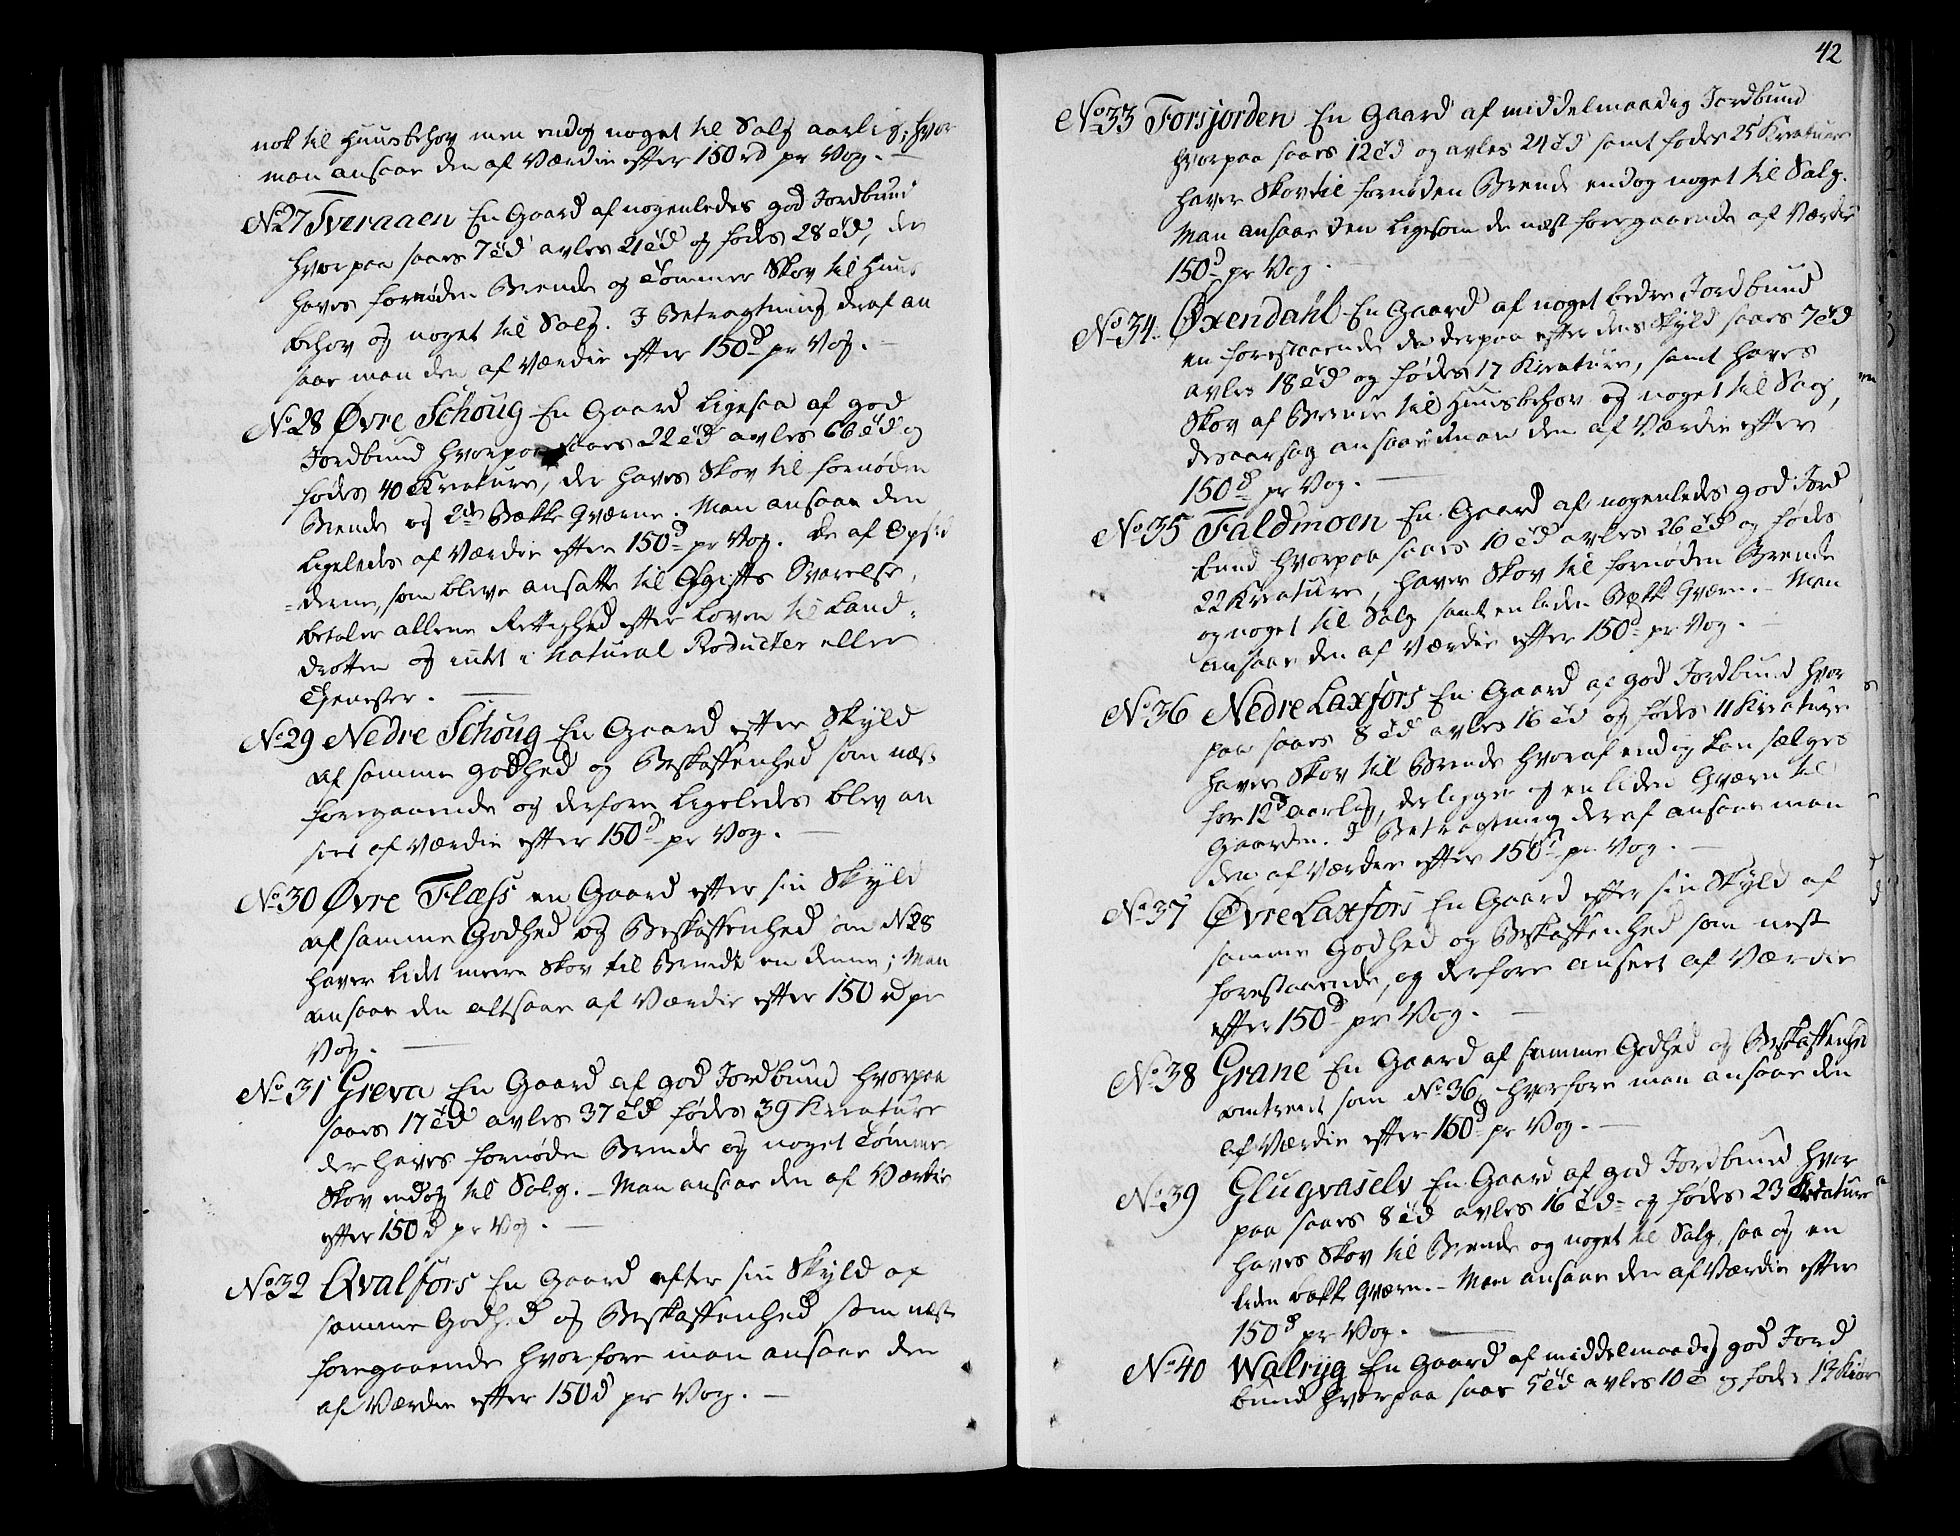 nok til Huusbehov men endog noget til Salg aarlig; hvor
man ansaae den af Værdie efter 150 rd pr Vog. —
No 27 Tveraaen En Gaard af nogenledes god Jordbund
hvorpaa saaes 7 td avles 21 td og fødes 28 td, der
haves fornøden Brende og Tømmer Skov til Huus
behov og noget til Salg. I Betragtning deraf an
saae man den af Værdie efter 150 d pr Vog. —
No 28 Øvre Schoug En Gaard ligesaa af god
Jordbund hvorpaa saaes 22 td avles 66 td og
fødes 40 Kreature, der haves Skov til fornøden
Brende og 2de Bække Qværne. Man ansaae den
ligeledes af Værdie efter 150 d pr Vog. De af Opsid
derne, som bleve ansatte til Afgifts Svarelse,
betaler allene Rettighed efter Loven til Land-
drotten og intet i natural Producter eller
Tjenester. —
No 29 Nedre Schoug En Gaard efter Skyld
af samme Godhed og Beskaffenhed som næst
foregaaende og derfore ligeledes blev an
seet af Værdie efter 150 d pr Vog. —
No 30 Øvre Flæss en Gaard efter sin Skyld
af samme Godhed og Beskaffenhed som No 28
haver lidt meere Skov til Brende en denne; Man
ansaae den altsaae af Værdie efter 150 rd pr
Vog. —
No 31 Greva En Gaard af god Jordbund hvorpaa
saaes 17 td avles 37 td fødes 39 Kreature
der haves fornøden Brende og noget Tømmer
Skov endog til Salg. — Man ansaae den af Værdie
efter 150 d pr Vog. —
No 32 Qvalfors En Gaard efter sin Skyld af
samme Godhed og Beskaffenhed som næst
foregaaende hvorfore man ansaae den
af Værdie efter 150 d pr Vog. —
42
No 33 Forsjorden En Gaard af middelmaadig Jordbund
hvorpaa saaes 12 td og avles 24 td samt fødes 25 Kreature
haver Skov til fornøden Brende endog noget til Salg.
Man ansaae den ligesom de næst foregaaende af Værdie
150 d pr Vog. —
No 34. Øxendahl En Gaard af noget bedre Jordbund
en forestaaende da derpaa efter dens Skyld saaes 7 td
avles 18 td og fødes 17 Kreature, samt haves
Skov af Brende til Huusbehov og noget til Salg,
desaarsag ansaae man den af Værdie efter
150 d pr Vog. —
No 35 Faldmoen En Gaard af nogenledes god Jord
bund hvorpaa saaes 10 td avles 26 td og fødes
22 Kreature, haver Skov til fornøden Brende
og noget til Salg samt en liden Bække Qværn. — Man
ansaae den af Værdie efter 150 d pr Vog. —
No 36 Nedre Laxfors En Gaard af god Jordbund hvor
paa saaes 8 td avles 16 td og fødes 11 Kreature
haves Skov til Brende hvoraf endog kan sælges
for 12 d aarlig, der ligger og en liden Qværn til
Gaarden. I Betragtning deraf ansaae man
den af Værdie efter 150 d pr Vog. —
No 37 Øvre Laxfors En Gaard efter sin Skyld af
samme Godhed og Beskaffenhed som nest
forestaaende, og derfore anseet af Værdie
efter 150 d pr Vog. —
No 38 Grane En Gaard af samme Godhed og Beskaffenhed
omtrent som No 36, hvorfore man ansaae den
af Værdie efter 150 d pr Vog. —
No 39 Glugvaselv En Gaard af god Jordbund hvor
paa saaes 8 td avles 16 td og fødes 23 Kreature
haves Skov til Brende og noget til Salg, saa og en
liden Bække Qværn. — Man ansaae den af Værdie efter
150 d pr Vog. —
No 40 Walryg En Gaard af middelmaadig god Jord
bund hvorpaa saaes 5 td avles 10 t og fødes 13